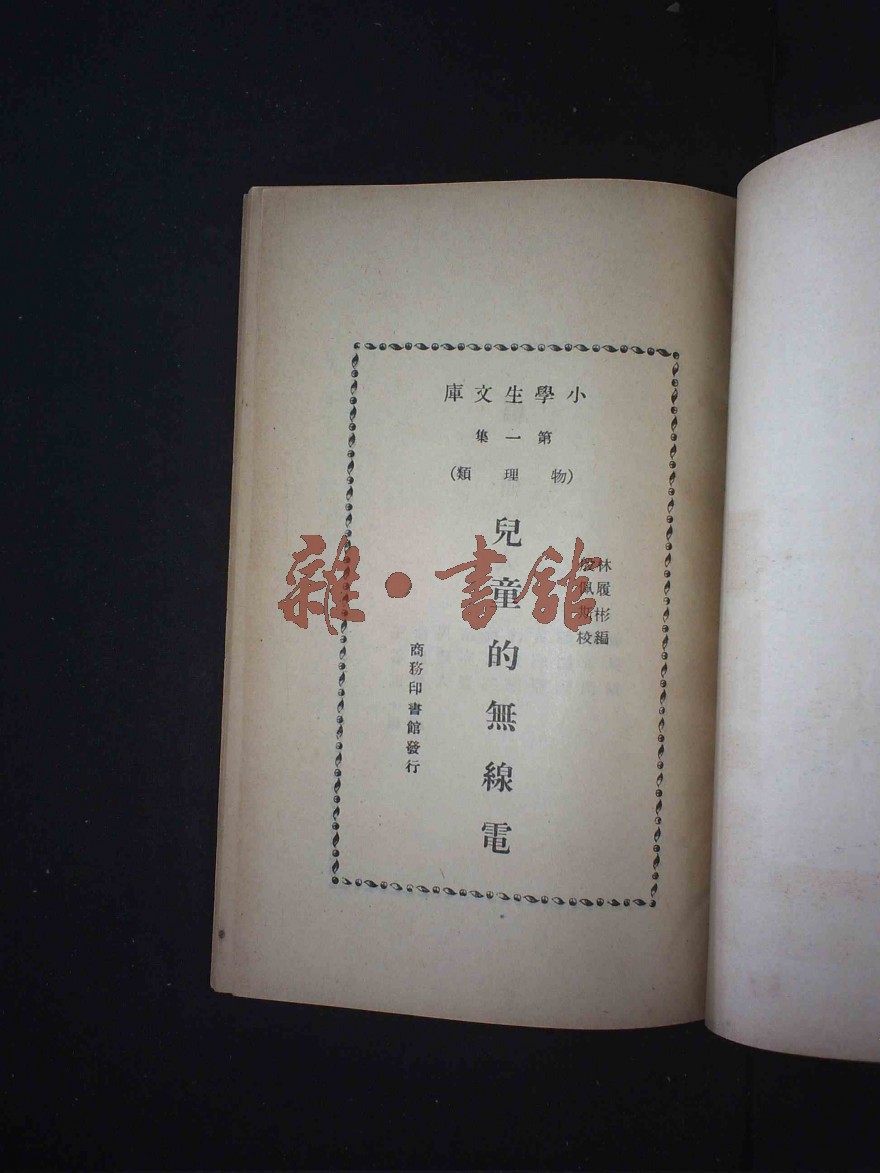 小學生文庫
第一集
(物理類)
林履彬編
殷佩斯校
兒童的無線電
商務印書館發行
雜·書館